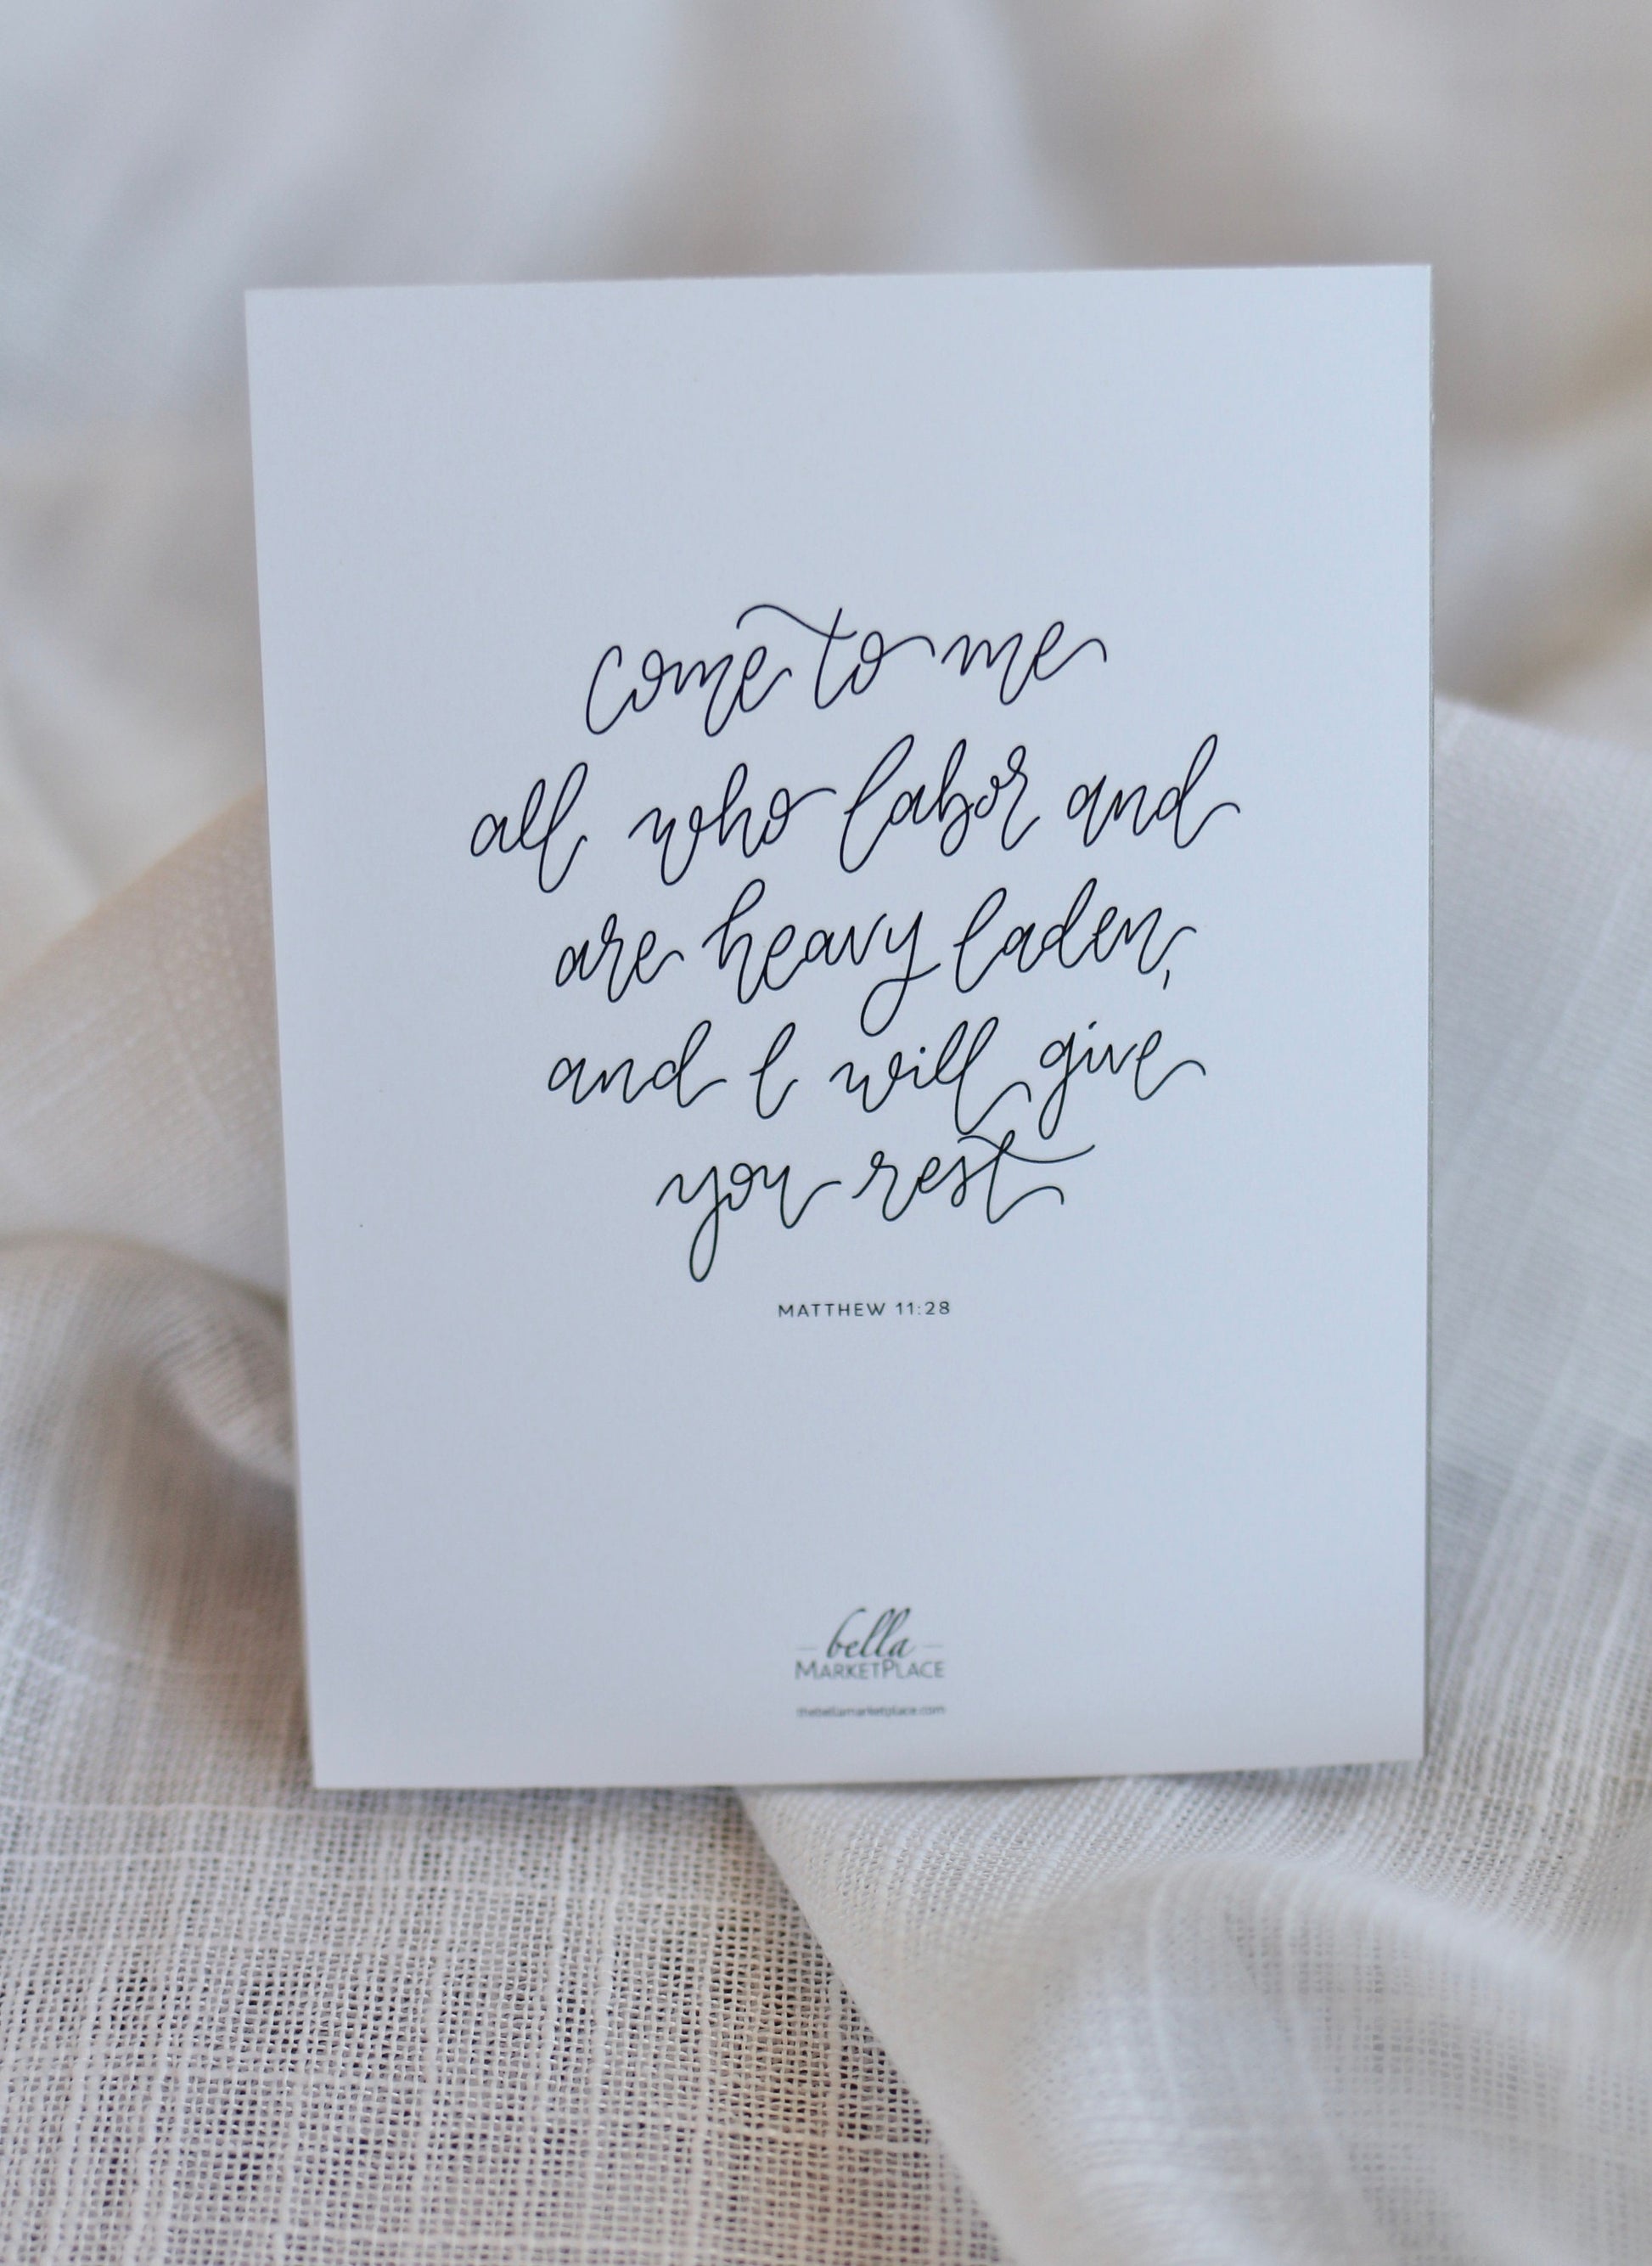 come to me
all who labor and
are heavy laden,
and I will give
you rest
MATTHEW 11:28
bella
MARKETPLACE
thebellamarketplace.com